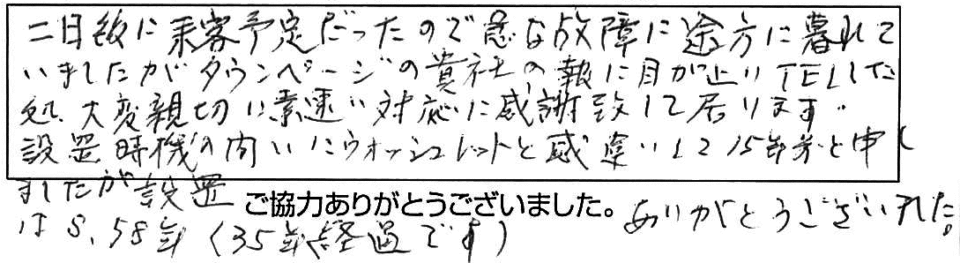 二日後に来客予定だったので急な故障に途方に暮れて
いましたがタウンページの貴社の報に目が止りTELした
処、大変親切に素速い対応に感謝致して居ります。
設置時機の問いにウォッシュレットと感違いして15年前と申し
ましたが設置
は S.58年（35年経過です）
ご協力ありがとうございました。
ありがとうございました。